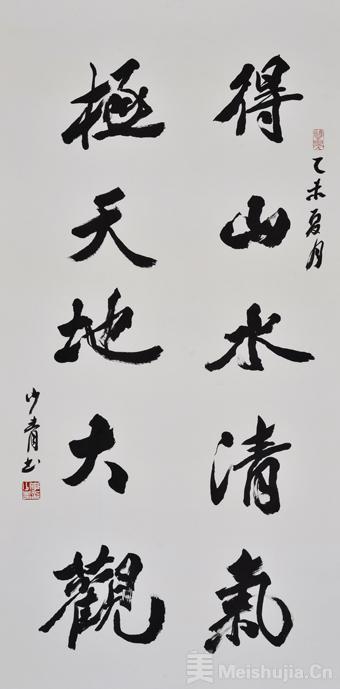 乙未夏月
得山水清氣
極天地大觀
少青书
美 Meishujia.Cn